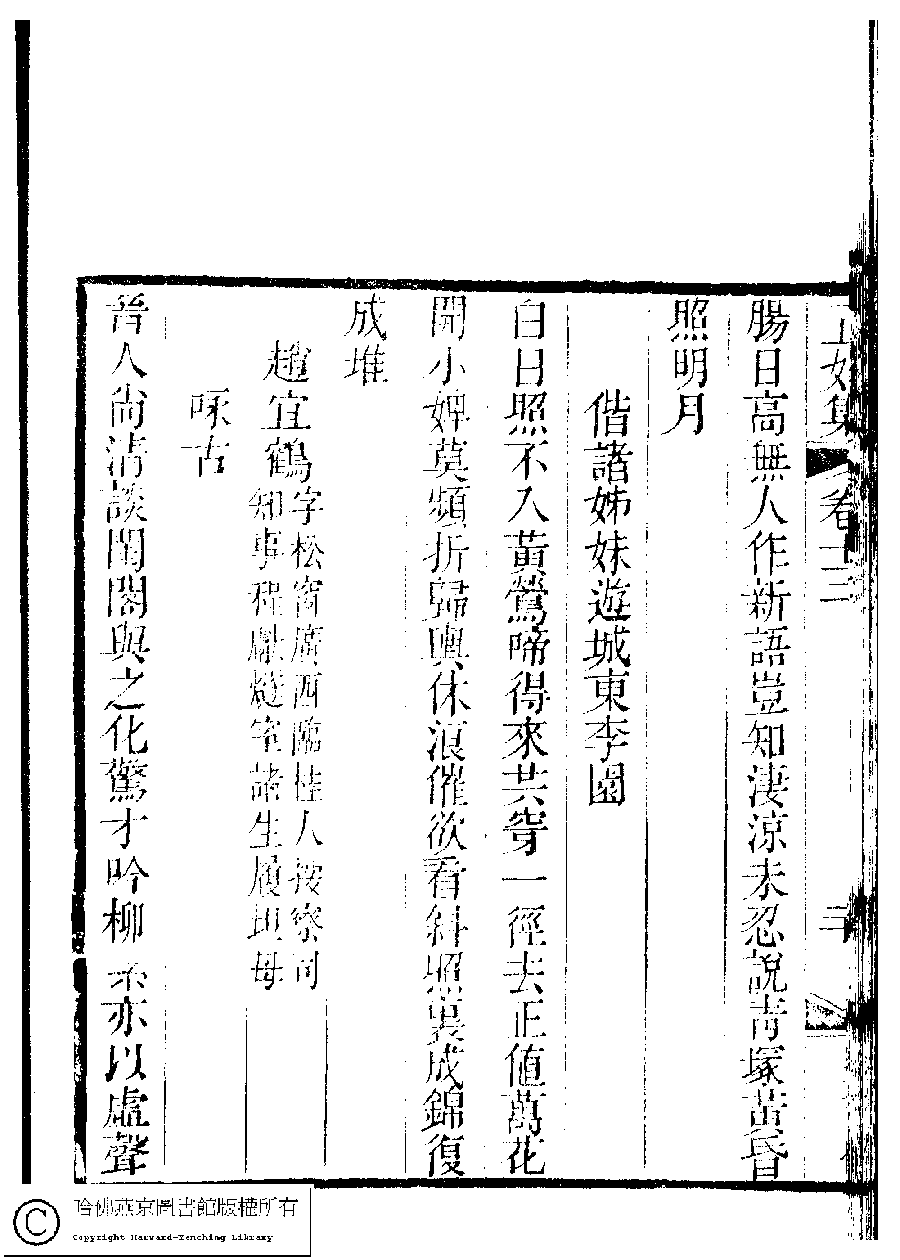 正始集 卷十三 二
腸日高無人作新語豈知淒涼未忍說青塚苦昏
照明月
偕諸姊妹遊城東李園
白日照不入黃鶯啼得來共穿一徑去正値萬花
開小婢莫頻折歸輿休浪催欲看斜照裏成錦復
成堆
趙宜鶴字松窗廣西臨桂人按察司
知事程獻燧室諸生履坦母
咏古
晉人尚清談閨閣與之化驚才吟柳絮亦以虛聲
哈佛燕京圖書館版權所有
Copyright Harvard-Yenching Library